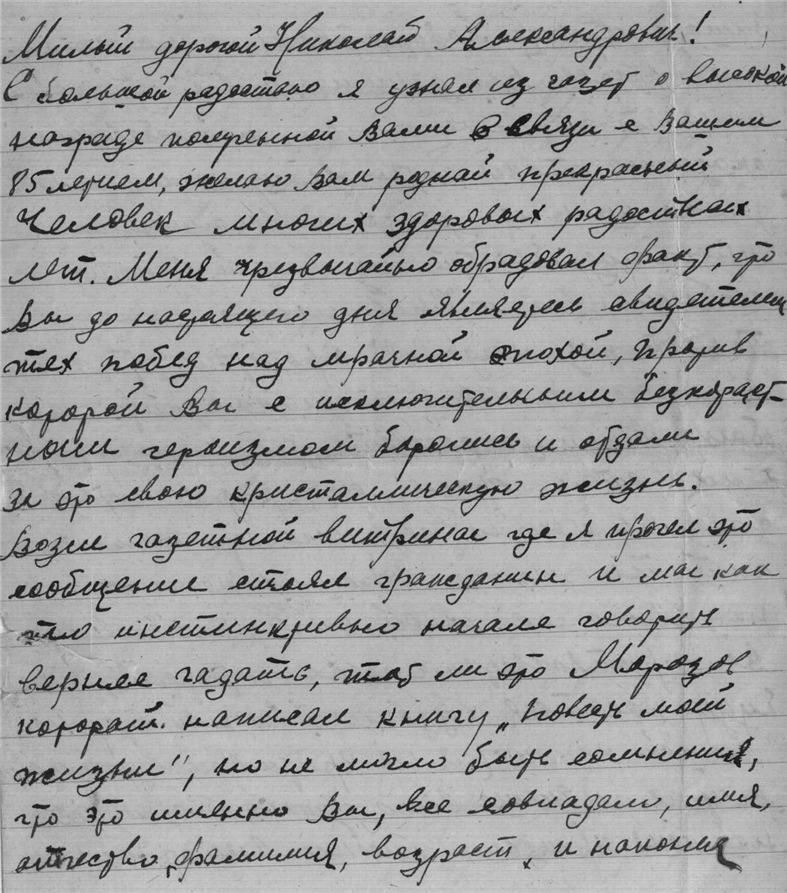 Милый дорогой Николай Александрович!
С большой радостью я узнал из газет о высокой
награде полученной Вами в связи с Вашим
85 летием, желаю Вам родной прекрасный
Человек многих здоровых радостных
лет. Меня чрезвычайно обрадовал факт, что
Вы до настоящего дня являетесь свидетелем
тех побед над мрачной эпохой, против
которой Вы с исключительным безкорыст-
ным героизмом боролись и отдали
за это свою кристаллическую жизнь.
Возле газетной витрины где я прочел это
сообщение стоял гражданин и мы как
то инстинктивно начали говорить
вернее гадать, тот ли это Морозов
который написал книгу „Повесть моей
жизни", но не могло быть сомнения,
что это именно Вы, все совпадало, имя,
отчество, фамилия, возраст, и наконец